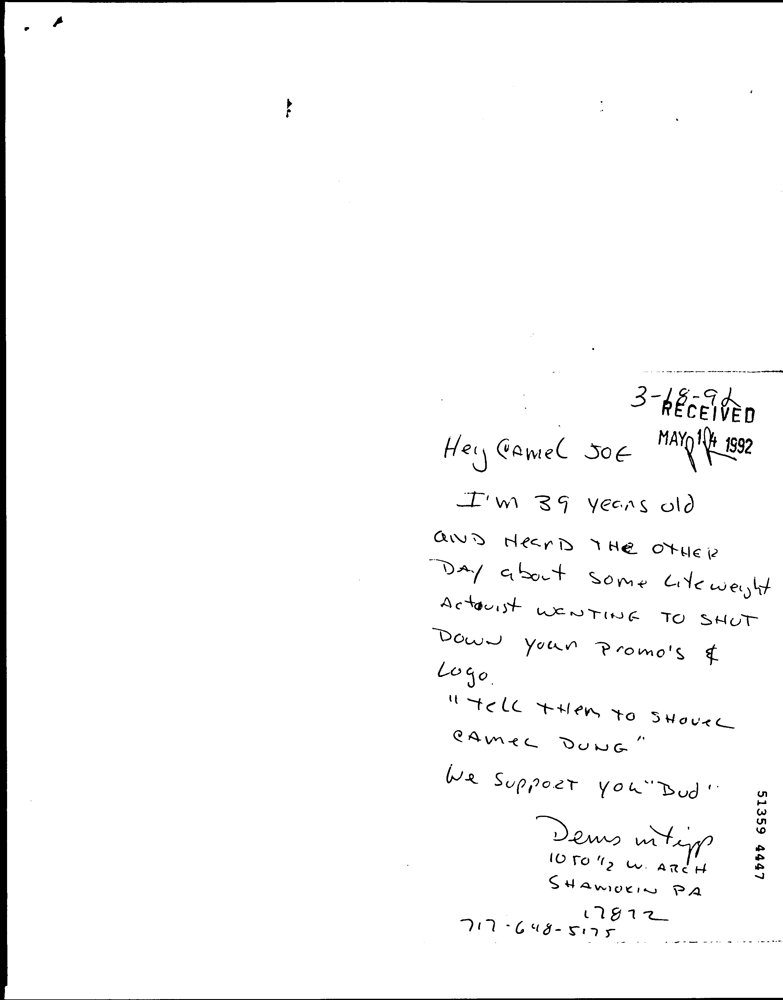 3-18-92
RECEIVED
MAY 14 1992
Hey Camel JOE
I'm 39 years old
AND HearD THe OTHER
DAY about some Liteweight
Actovist WANTING TO SHUT
DOWN your Promo's &
Logo.
"Tell THem TO SHOVEL
CAMEL DUNG"
We SuppoRT you "Bud"
W. ARCH
SHAMOKIN PA
17872
717-648-5175
51359 4447